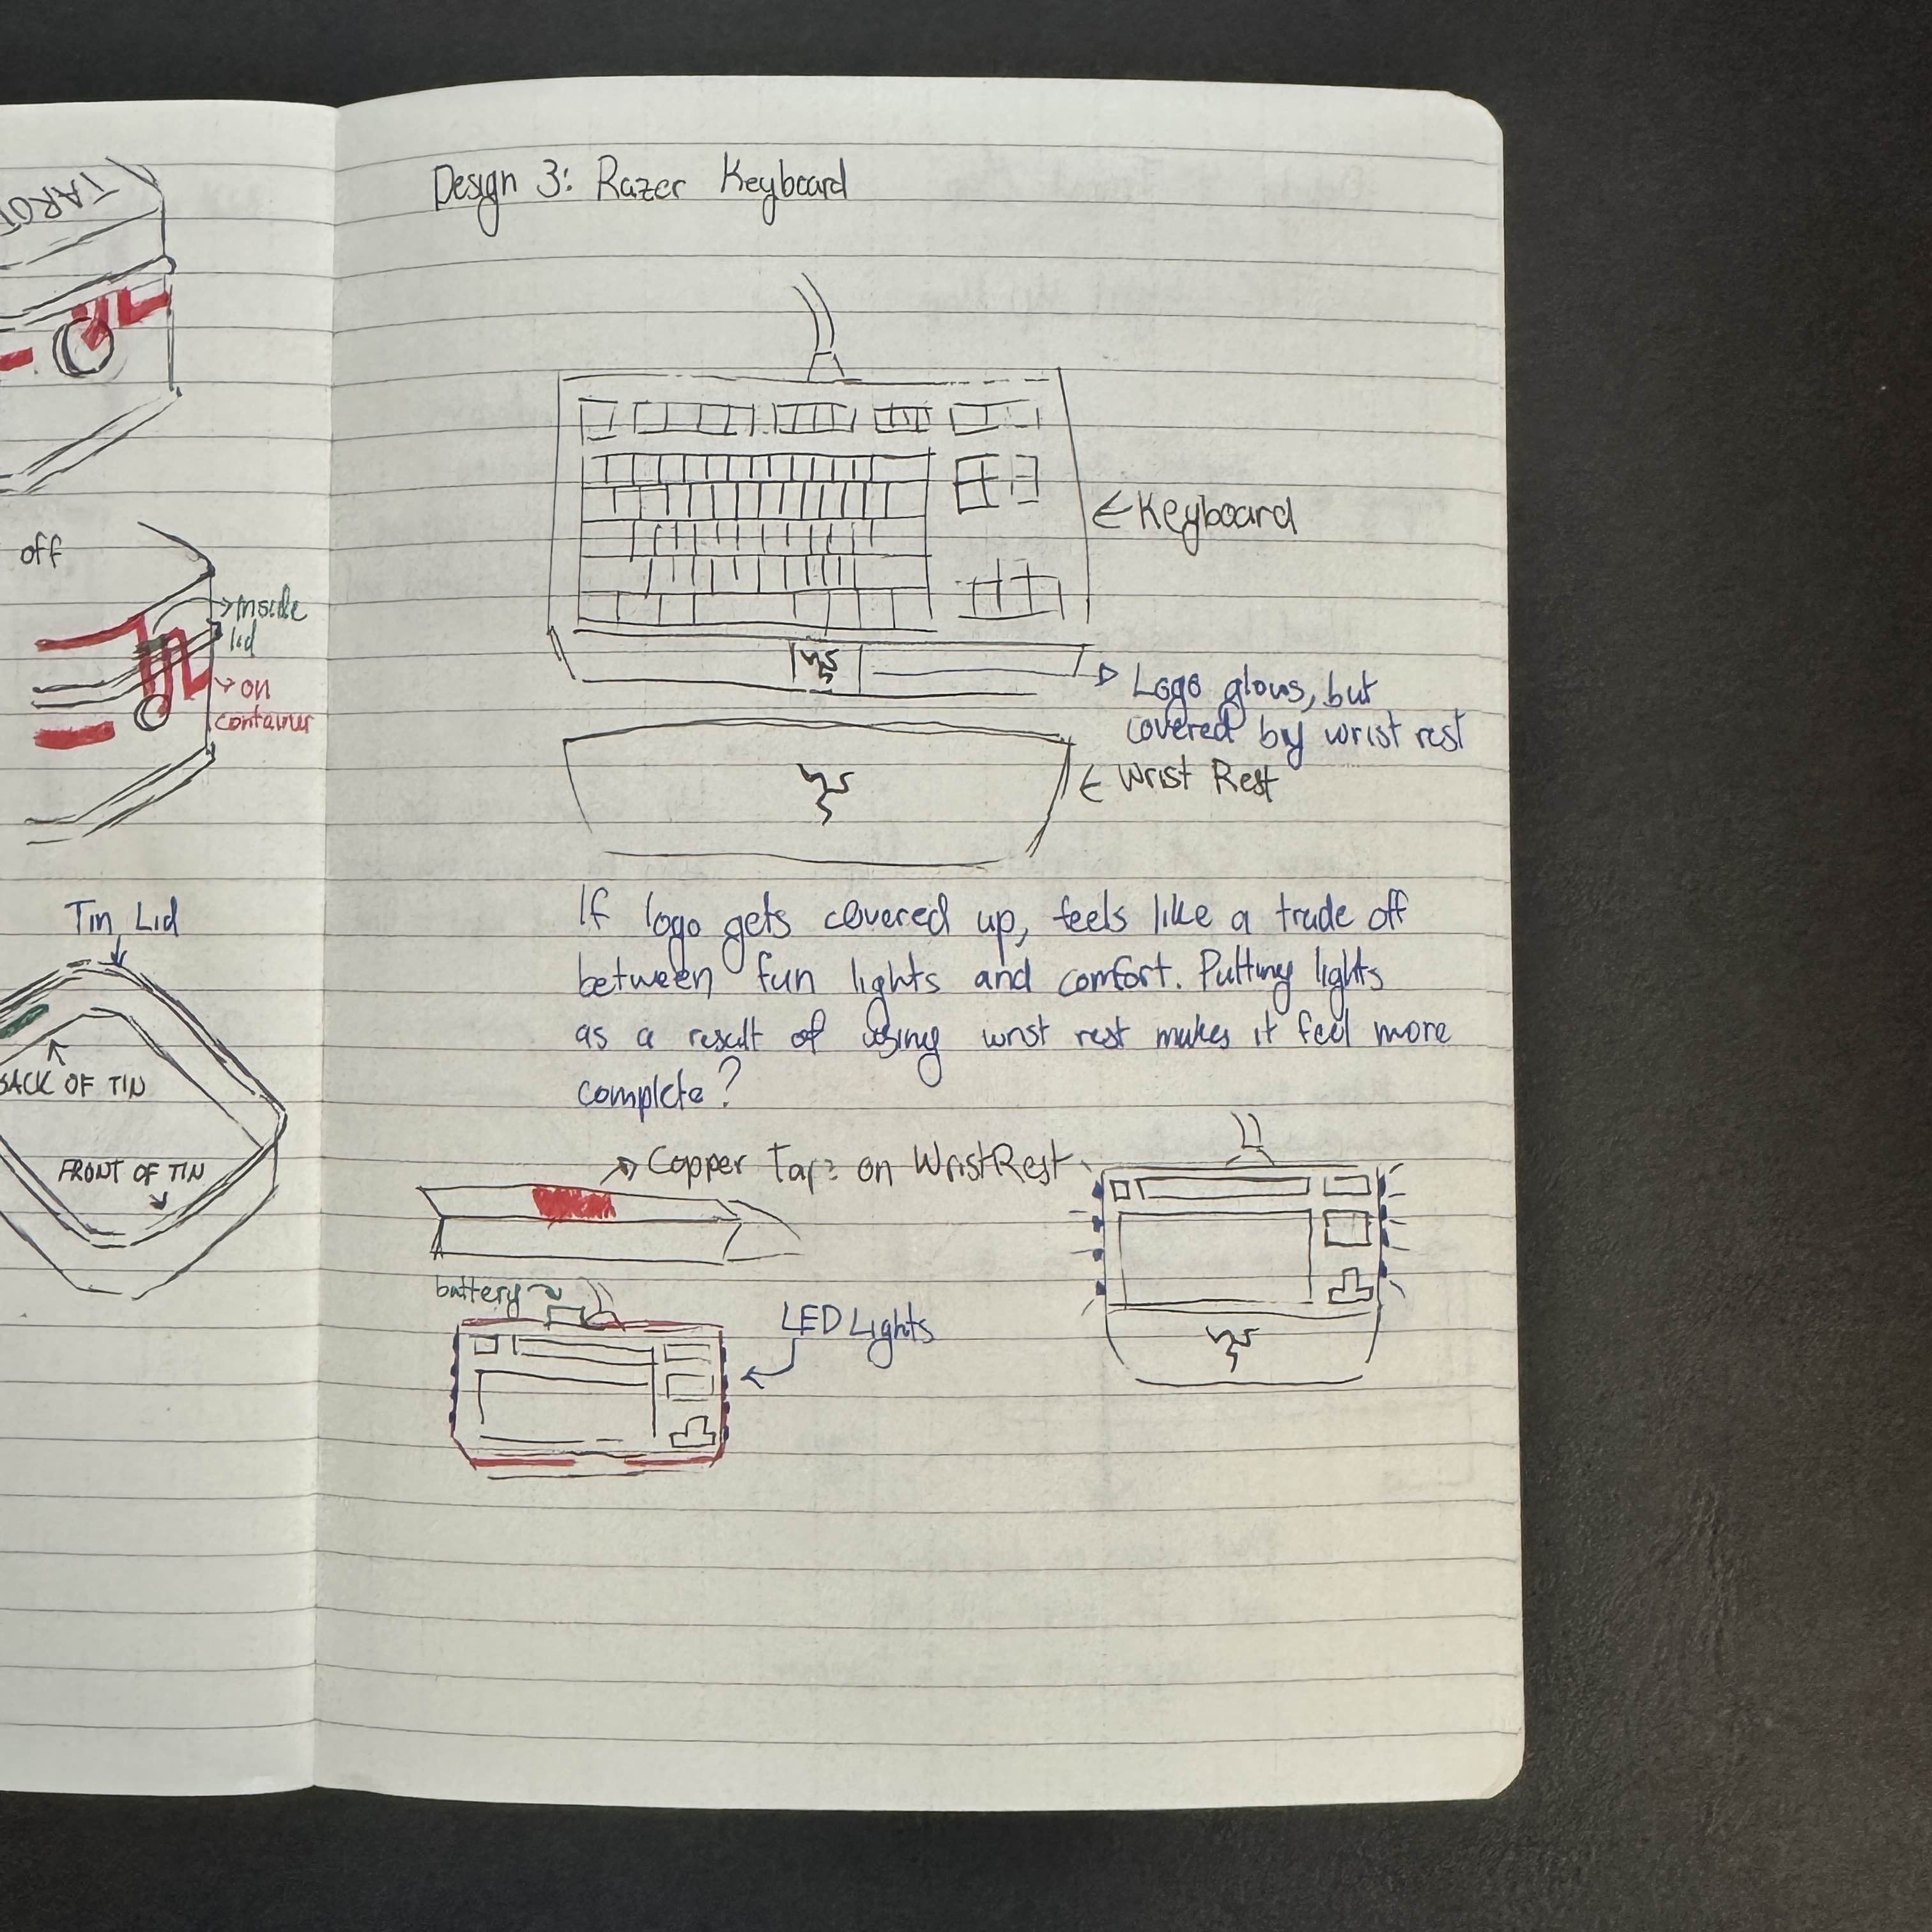 TAROT
off
inside
lid
on
container
Tin Lid
BACK OF TIN
FRONT OF TIN
Design 3: Razer Keyboard
Keyboard
Logo glows, but
covered by wrist rest
Wrist Rest
If logo gets covered up, feels like a trade off
between fun lights and comfort. Putting lights
as a result of using wrist rest makes it feel more
complete?
Copper Tape on Wrist Rest
battery
LED Lights